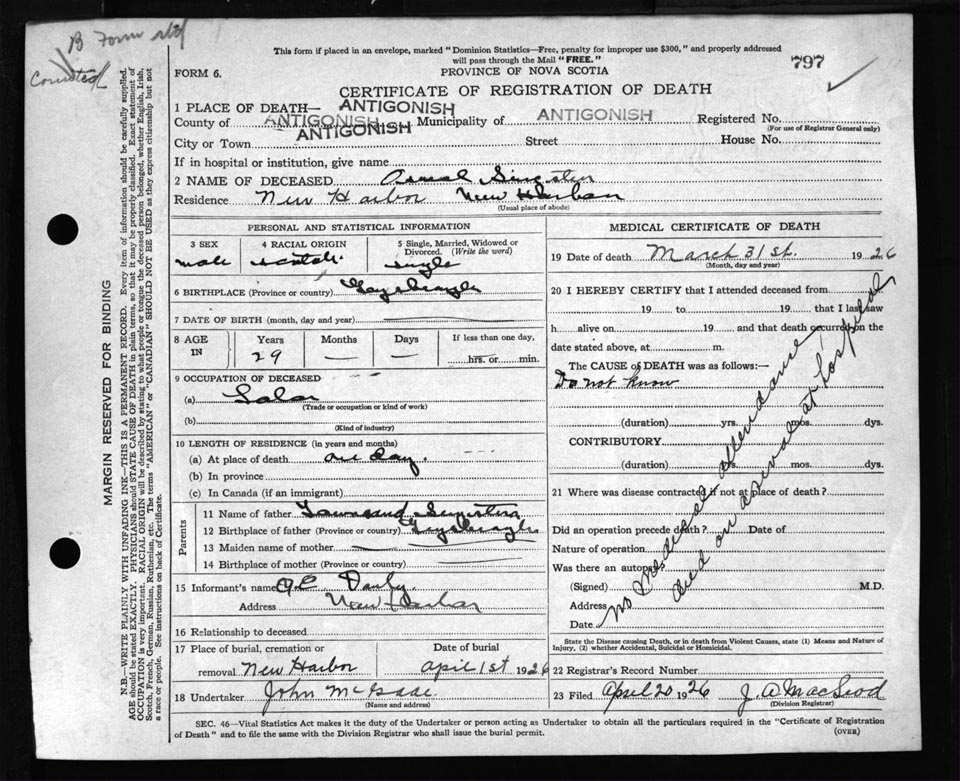 B Form std
Corrected
797
This form if placed in an envelope, marked "Dominion Statistics—Free, penalty for improper use $300," and properly addressed
will pass through the Mail "FREE."
FORM 6.
PROVINCE OF NOVA SCOTIA
CERTIFICATE OF REGISTRATION OF DEATH
1 PLACE OF DEATH— ANTIGONISH
County of ANTIGONISH Municipality of ANTIGONISH Registered No.
(For use of Registrar General only)
City or Town ANTIGONISH Street House No.
If in hospital or institution, give name
2 NAME OF DECEASED
Residence New Harbor New Harbor
(Usual place of abode)
PERSONAL AND STATISTICAL INFORMATION
3 SEX 4 RACIAL ORIGIN 5 Single, Married, Widowed or Divorced. (Write the word)
male scotch single
6 BIRTHPLACE (Province or country) Guysborough
7 DATE OF BIRTH (month, day and year)
8 AGE IN Years Months Days If less than one day,
29 — — hrs. or min.
9 OCCUPATION OF DECEASED
(a)
(Trade or occupation or kind of work)
(b)
(Kind of industry)
10 LENGTH OF RESIDENCE (in years and months)
(a) At place of death one day.
(b) In province
(c) In Canada (if an immigrant)
Parents
11 Name of father Townsend
12 Birthplace of father (Province or country) Guysborough
13 Maiden name of mother
14 Birthplace of mother (Province or country)
15 Informant's name
Address New Harbor
16 Relationship to deceased
17 Place of burial, cremation or removal New Harbor Date of burial April 1st 1926
18 Undertaker John McIsaac.
(Name and address)
MEDICAL CERTIFICATE OF DEATH
19 Date of death March 31st. 1926
(Month, day and year)
20 I HEREBY CERTIFY that I attended deceased from
19 to 19 that I last saw
h alive on 19 and that death occurred on the
date stated above, at m.
The CAUSE of DEATH was as follows:—
Do not know
(duration) yrs. mos. dys.
CONTRIBUTORY
(duration) mos. dys.
21 Where was disease contracted if not at place of death?
Did an operation precede death? Date of
Nature of operation
Was there an autopsy
(Signed) M.D.
Address
Date
No Medical attendance,
died on arrival at hospital
State the Disease causing Death, or in death from Violent Causes, state (1) Means and Nature of
Injury, (2) whether Accidental, Suicidal or Homicidal.
22 Registrar's Record Number
23 Filed April 20 1926 J. A. MacLeod
(Division Registrar)
SEC. 46—Vital Statistics Act makes it the duty of the Undertaker or person acting as Undertaker to obtain all the particulars required in the "Certificate of Registration
of Death" and to file the same with the Division Registrar who shall issue the burial permit.
(OVER)
MARGIN RESERVED FOR BINDING
N.B.—WRITE PLAINLY WITH UNFADING INK—THIS IS A PERMANENT RECORD. Every item of information should be carefully supplied.
AGE should be stated EXACTLY. PHYSICIANS should STATE CAUSE OF DEATH in plain terms, so that it may be properly classified. Exact statement of
OCCUPATION is very important. RACIAL ORIGIN will be described by stating to what people or tongue the deceased person belonged, whether English, Irish,
Scotch, French, German, Russian, Ruthenian, etc. The terms "AMERICAN" or "CANADIAN" SHOULD NOT BE USED as they express citizenship but not
a race or people. See instructions on back of Certificate.